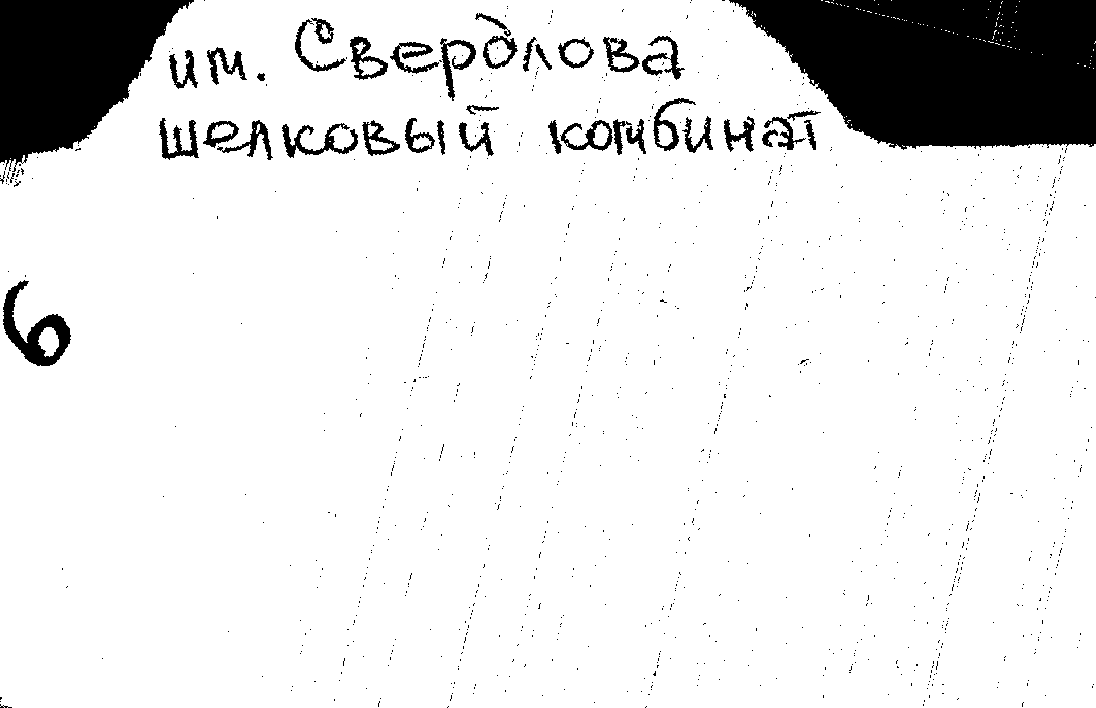 им. Свердлова
шелковый комбинат
6